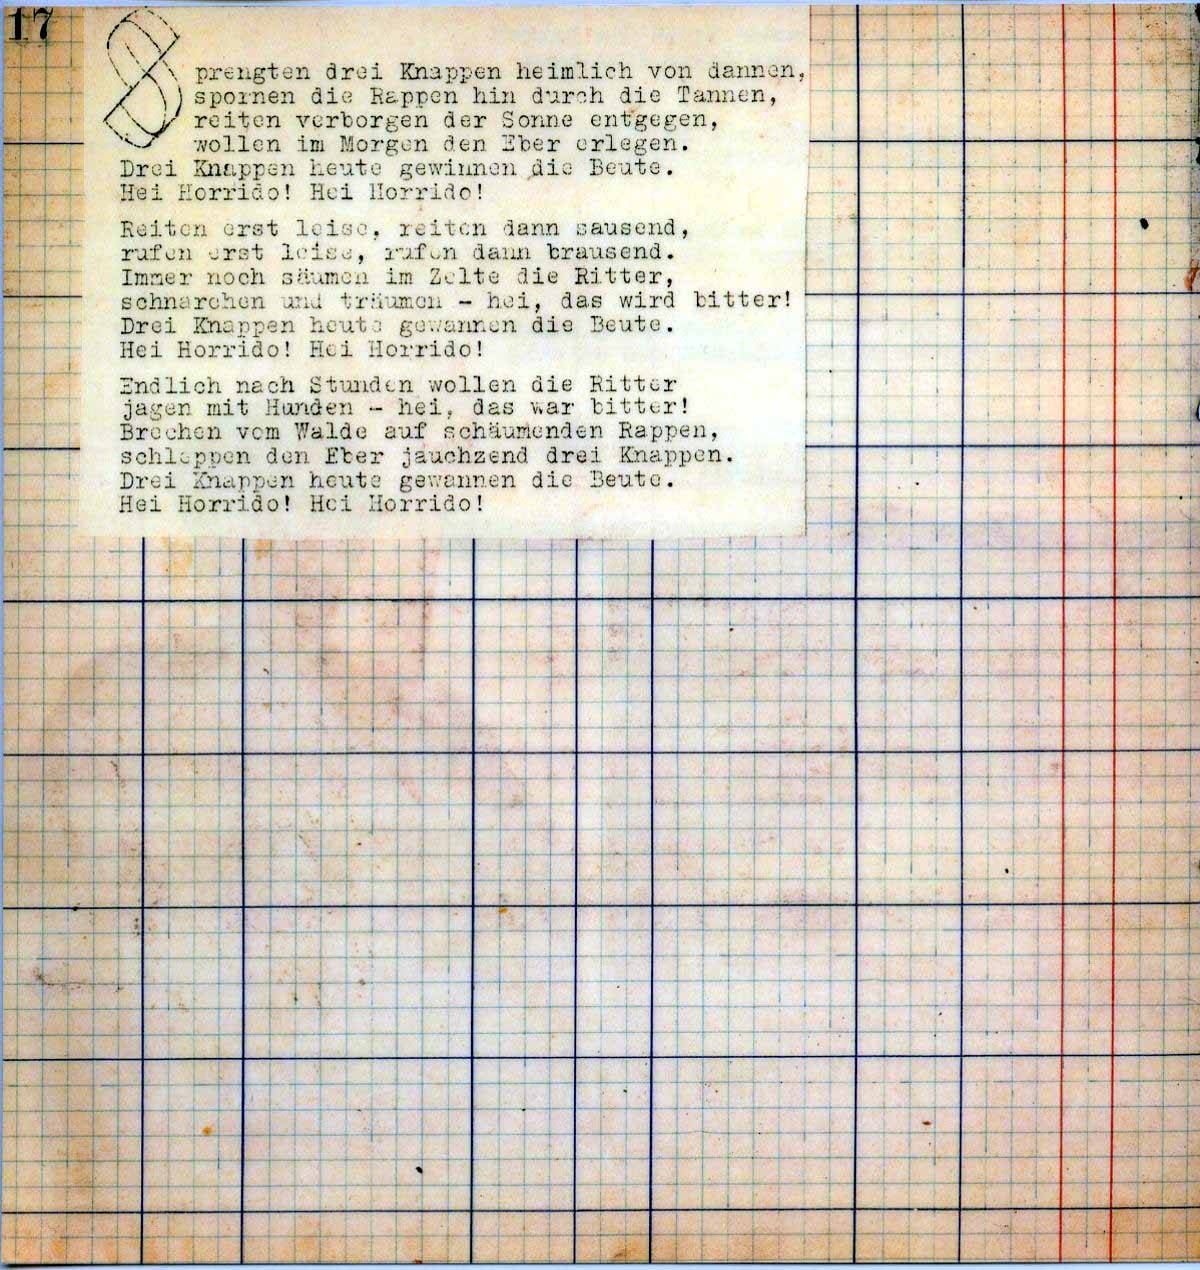 17
Sprengten drei Knappen heimlich von dannen,
spornen die Rappen hin durch die Tannen,
reiten verborgen der Sonne entgegen,
wollen im Morgen den Eber erlegen.
Drei Knappen heute gewinnen die Beute.
Hei Horrido! Hei Horrido!
Reiten erst leise, reiten dann sausend,
rufen erst leise, rufen dann brausend.
Immer noch säumen im Zelte die Ritter,
schnarchen und träumen - hei, das wird bitter!
Drei Knappen heute gewannen die Beute.
Hei Horrido! Hei Horrido!
Endlich nach Stunden wollen die Ritter
jagen mit Hunden - hei, das war bitter!
Brechen vom Walde auf schäumenden Rappen,
schleppen den Eber jauchzend drei Knappen.
Drei Knappen heute gewannen die Beute.
Hei Horrido! Hei Horrido!